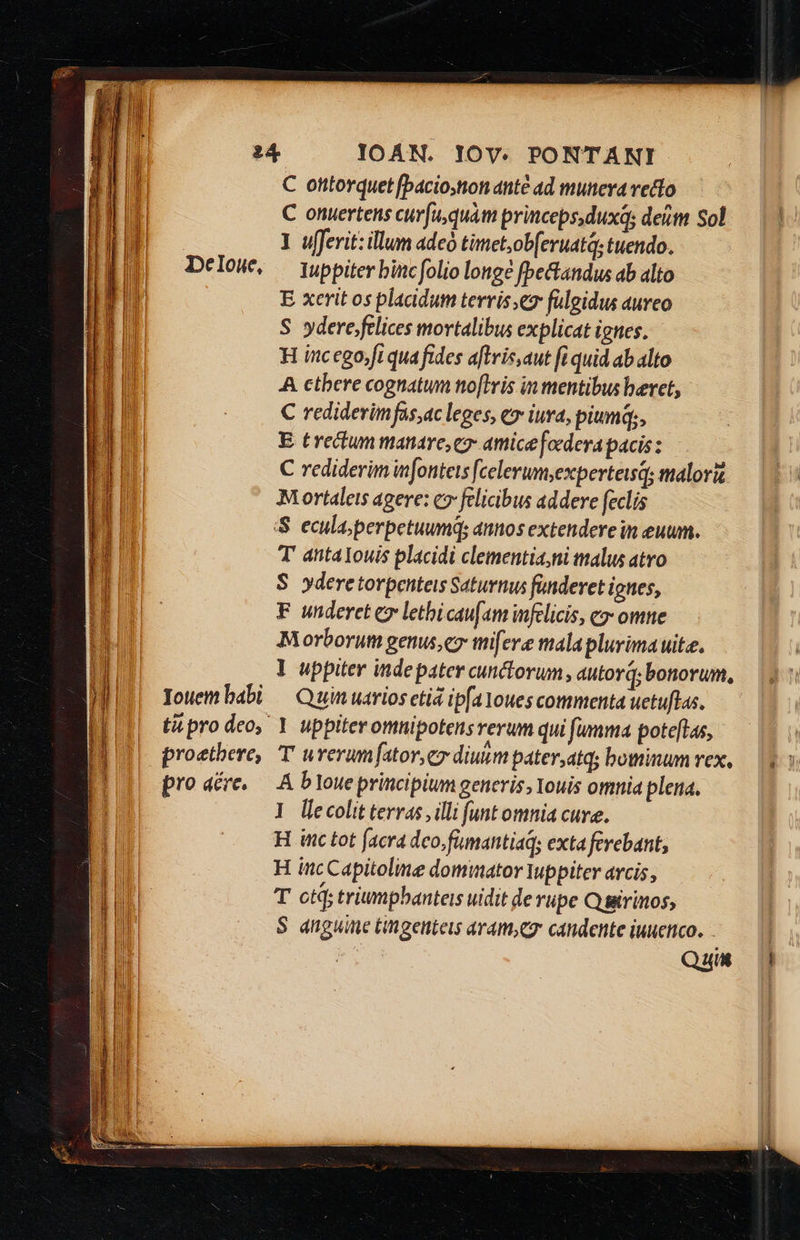 24 IOAN. IOV. PONTANI
C ontorquet ſpacio,non antè ad munera recto
C onuertens curſu,quàm princeps,duxq́; deûm Sol
I uſſerit: illum adeò timet,obſeruatq́; tuendo.
De Ioue, Iuppiter hinc ſolio longè ſpectandus ab alto
E xerit os placidum terris,& fulgidus aureo
S ydere,felices mortalibus explicat ignes.
H inc ego,ſi qua fides aſtris,aut ſi quid ab alto
A ethere cognatum noſtris in mentibus hæret,
C rediderim fas,ac leges, & iura, piumq́;,
E t rectum manare,& amicæ fœdera pacis:
C rediderim inſonteis ſcelerum,experteisq́; malorū
M ortaleis agere: & felicibus addere ſeclis
S ecula,perpetuumq́; annos extendere in æuum.
T anta Iouis placidi clementia,ni malus atro
S ydere torpenteis Saturnus funderet ignes,
F underet & lethi cauſam infelicis, & omne
M orborum genus,& miſeræ mala plurima uitæ.
I uppiter inde pater cunctorum, autorq́; bonorum,
Iouem habi Quin uarios etiā ipſa Ioues commenta uetuſtas.
tū pro deo, I uppiter omnipotens rerum qui ſumma poteſtas,
pro æthere, T u rerum ſator,& diuûm pater,atq; hominum rex,
pro aëre. A b Ioue principium generis, Iouis omnia plena.
I lle colit terras, illi ſunt omnia curæ.
H inc tot ſacra deo,fumantiaq́; exta ferebant,
H inc Capitolinæ dominator Iuppiter arcis,
T otq́; triumphanteis uidit de rupe Quirinos,
S anguine tingenteis aram,& candente iuuenco.
Quin